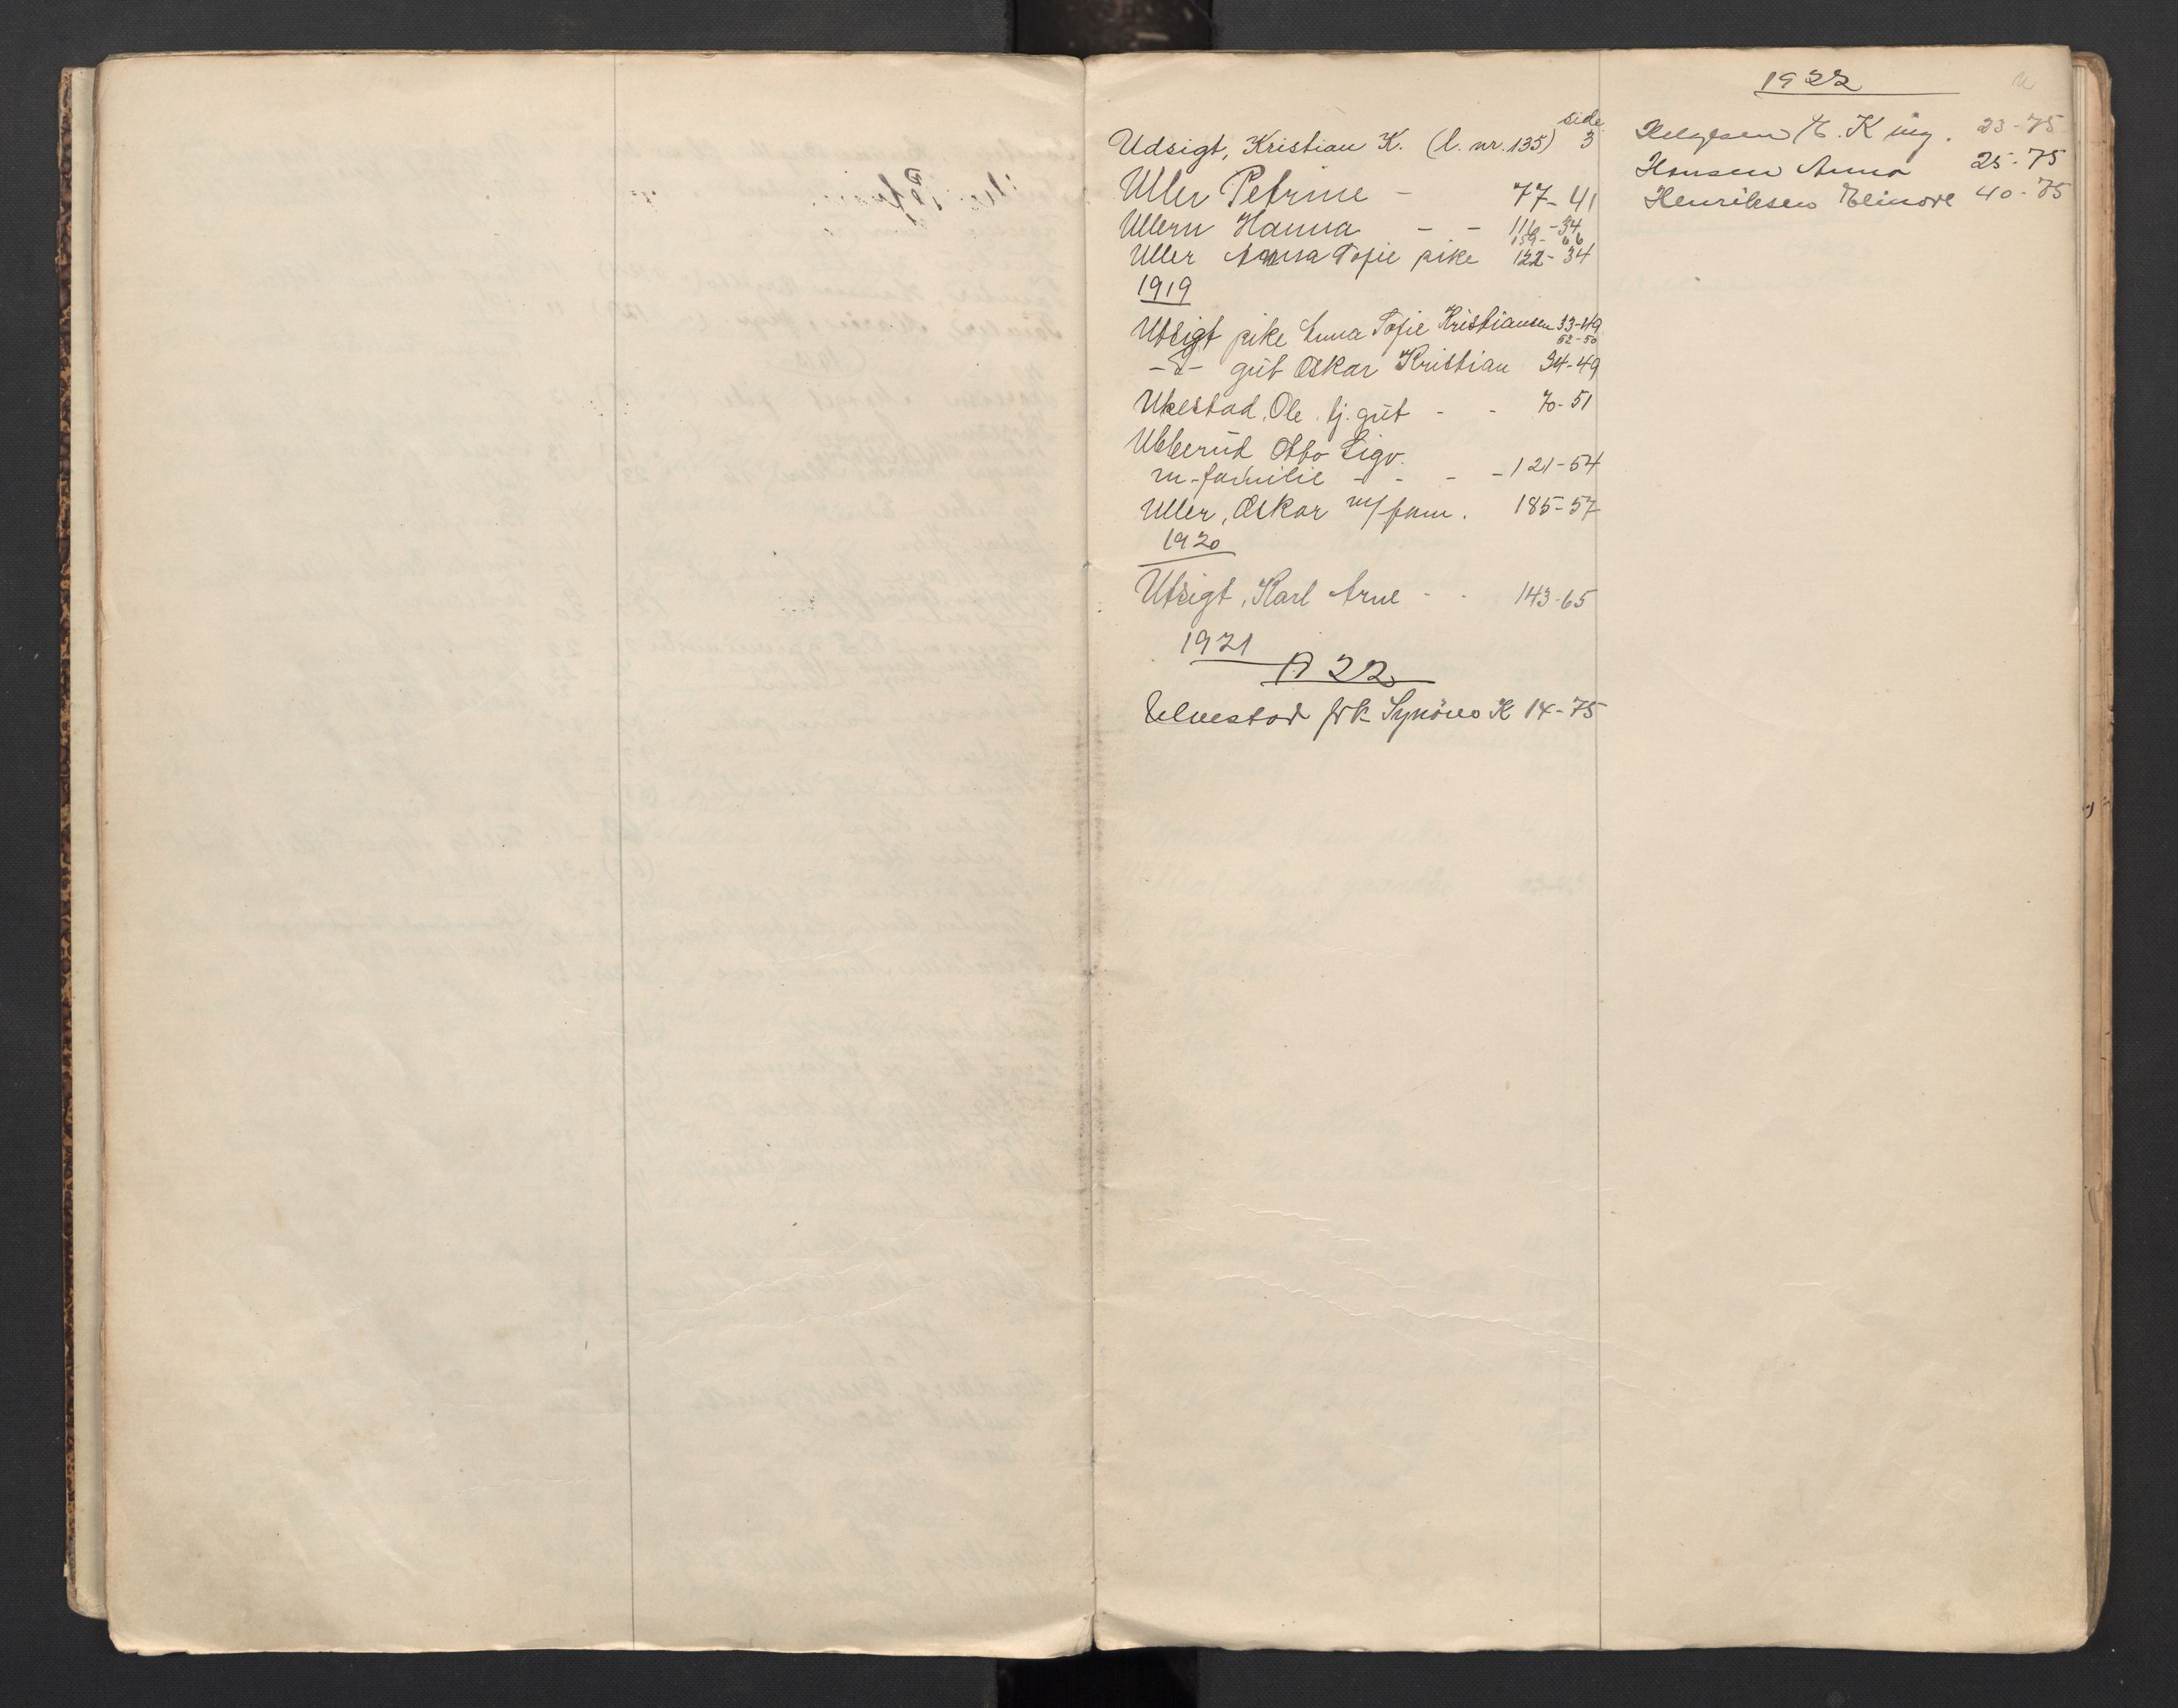 side
Udsigt, Kristian K. (l. nr. 135) 3
Uller Petrine - 77-41
Ullern Hanna - - 116-34
159-66
Uller Anna Tofie pike 122-34
1919
Utsigt pike Anna Tofie Kristiansen 33-49
52-50
-"- gut Oskar Kristian 34-49
Ukestad, Ole tj. gut - - 70-51
Ubberud Otto Sigv.
m-familie - - - - 121-54
Uller, Oskar m/ fam. 185-57
1920
Utsigt, Karl Arne - - 143-65
1921
1922
Ulvestad frk Synöve K 14-75
1922
U
Helgesen K. ing. 23-75
Hansen Anna 25-75
Henriksen Elinore 40-75